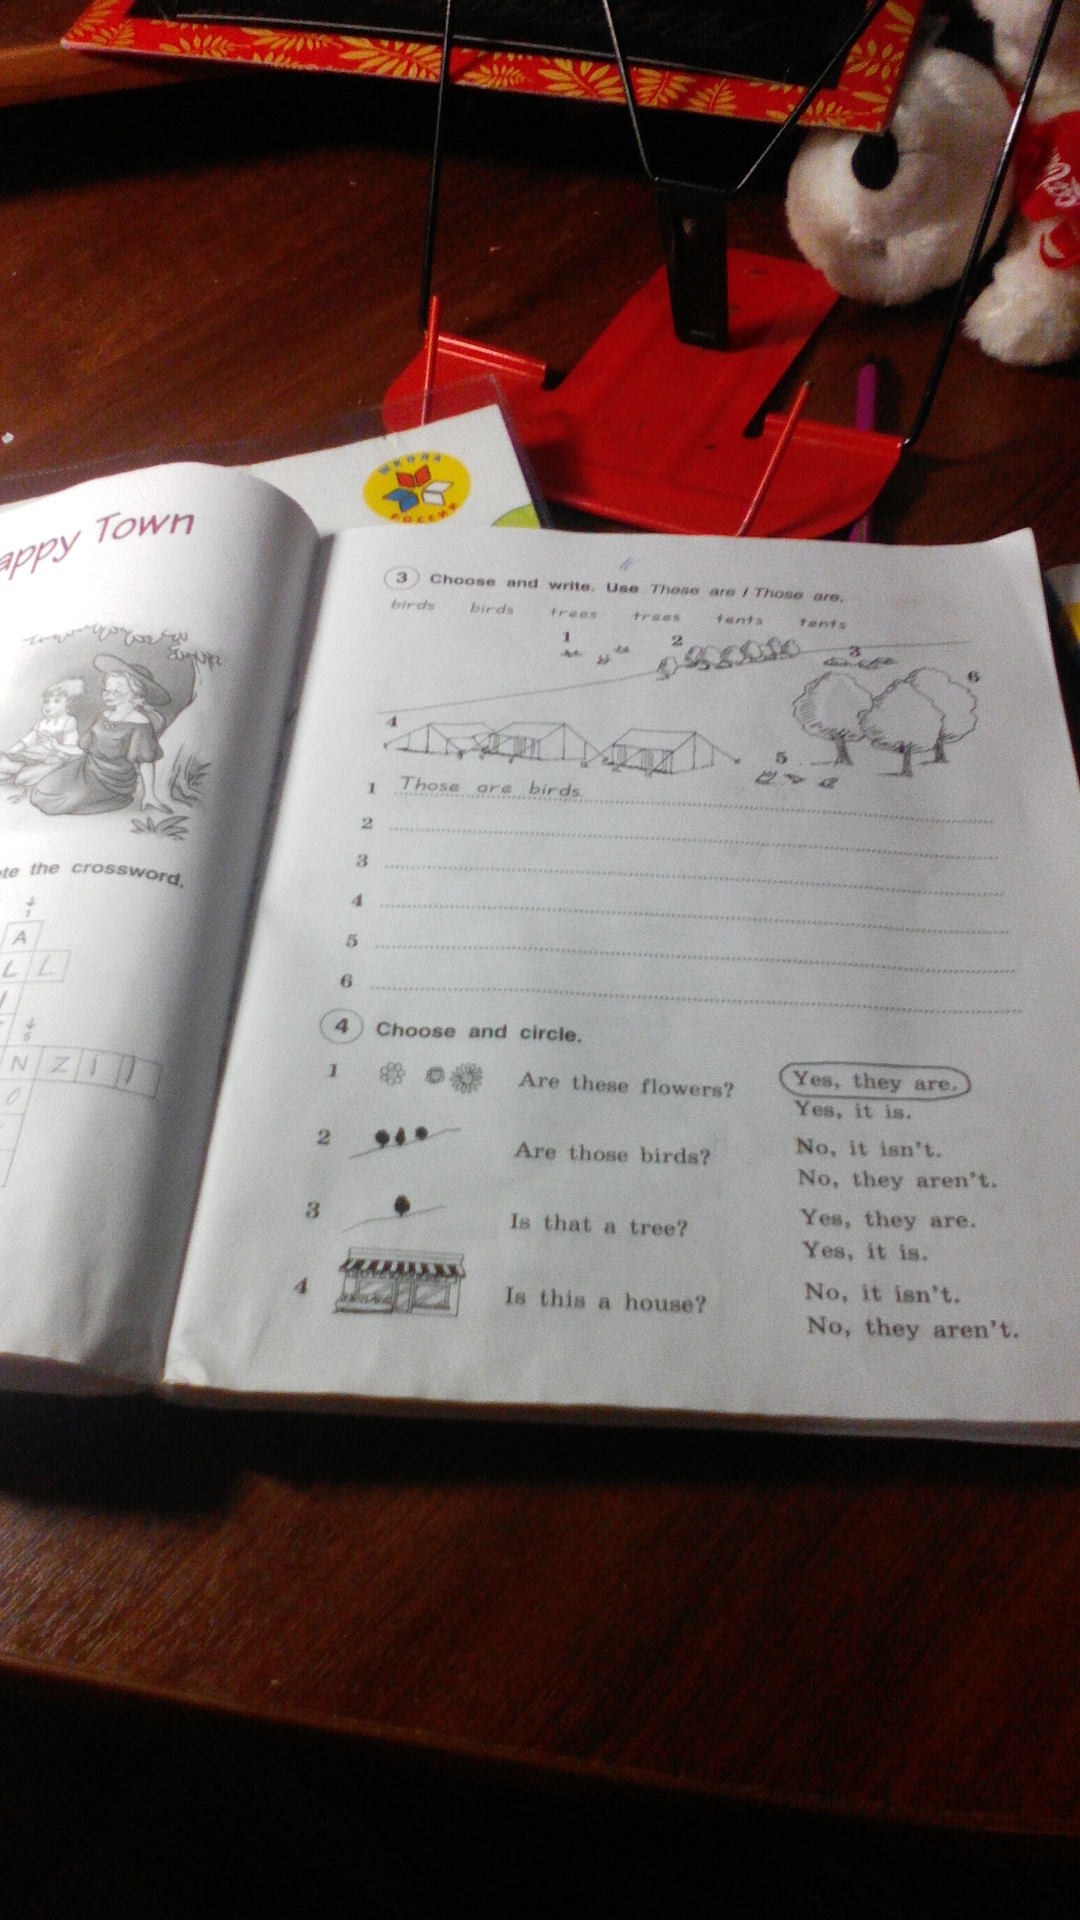 ШКОЛА
РОССИИ
appy Town
te the crossword.
1
A
L L
6
N Z I
O
3 Choose and write. Use These are / Those are.
birds birds trees trees tents tents
1 2 3
6
4
5
1 Those are birds.
2
3
4
5
6
4 Choose and circle.
1 Are these flowers? Yes, they are.
Yes, it is.
2 Are those birds? No, it isn't.
No, they aren't.
3 Is that a tree? Yes, they are.
Yes, it is.
4 Is this a house? No, it isn't.
No, they aren't.